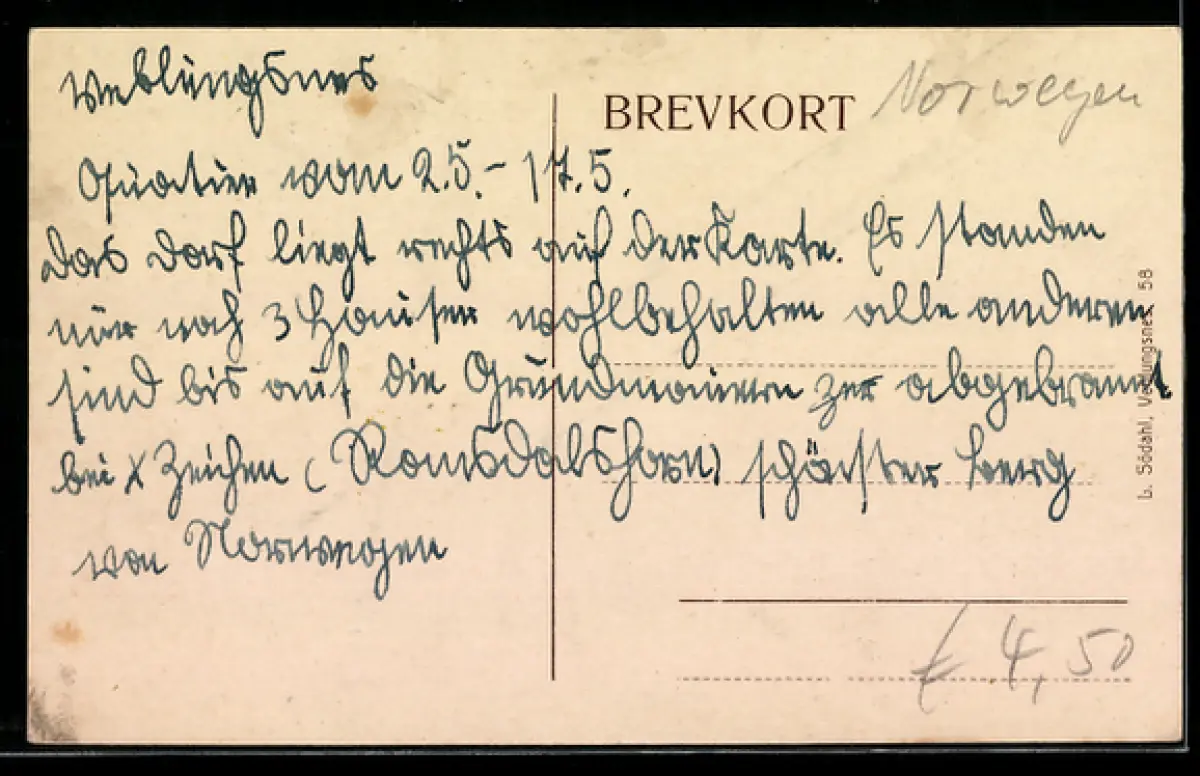 Veblungsnes
BREVKORT
Norwegen
Quatier vom 2.5.- 17.5.
das Dorf liegt rechts auf der Karte. Es standen
nur noch 3 Häuser wohlbehalten alle anderen
sind bis auf die Grundmauern abgebrannt
bei X Zeichen (Romsdalshorn) Berg
von Norwegen
L. Södahl, Veblungsnes 58
€ 4,50